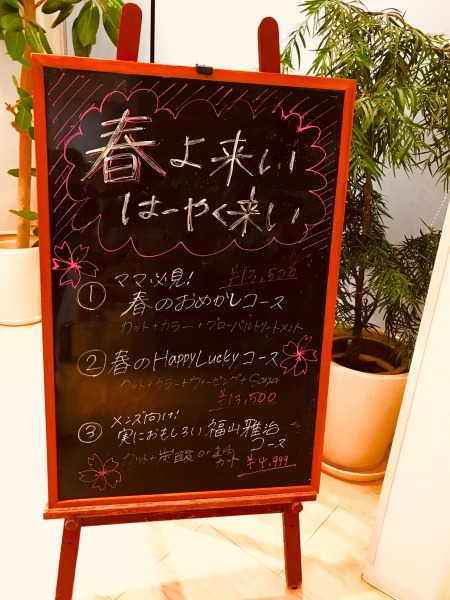 春よ来い
はーやく来い
① ママ必見! ¥13,500
春のおめかしコース
カット+カラー+グローバルトリートメント
② 春のHappy Luckyコース
カット+カラー+ウィービング+
¥13,500
③ メンズ向け!
実におもしろい福山雅治
コース
カット+炭酸 or
カット ¥4,999